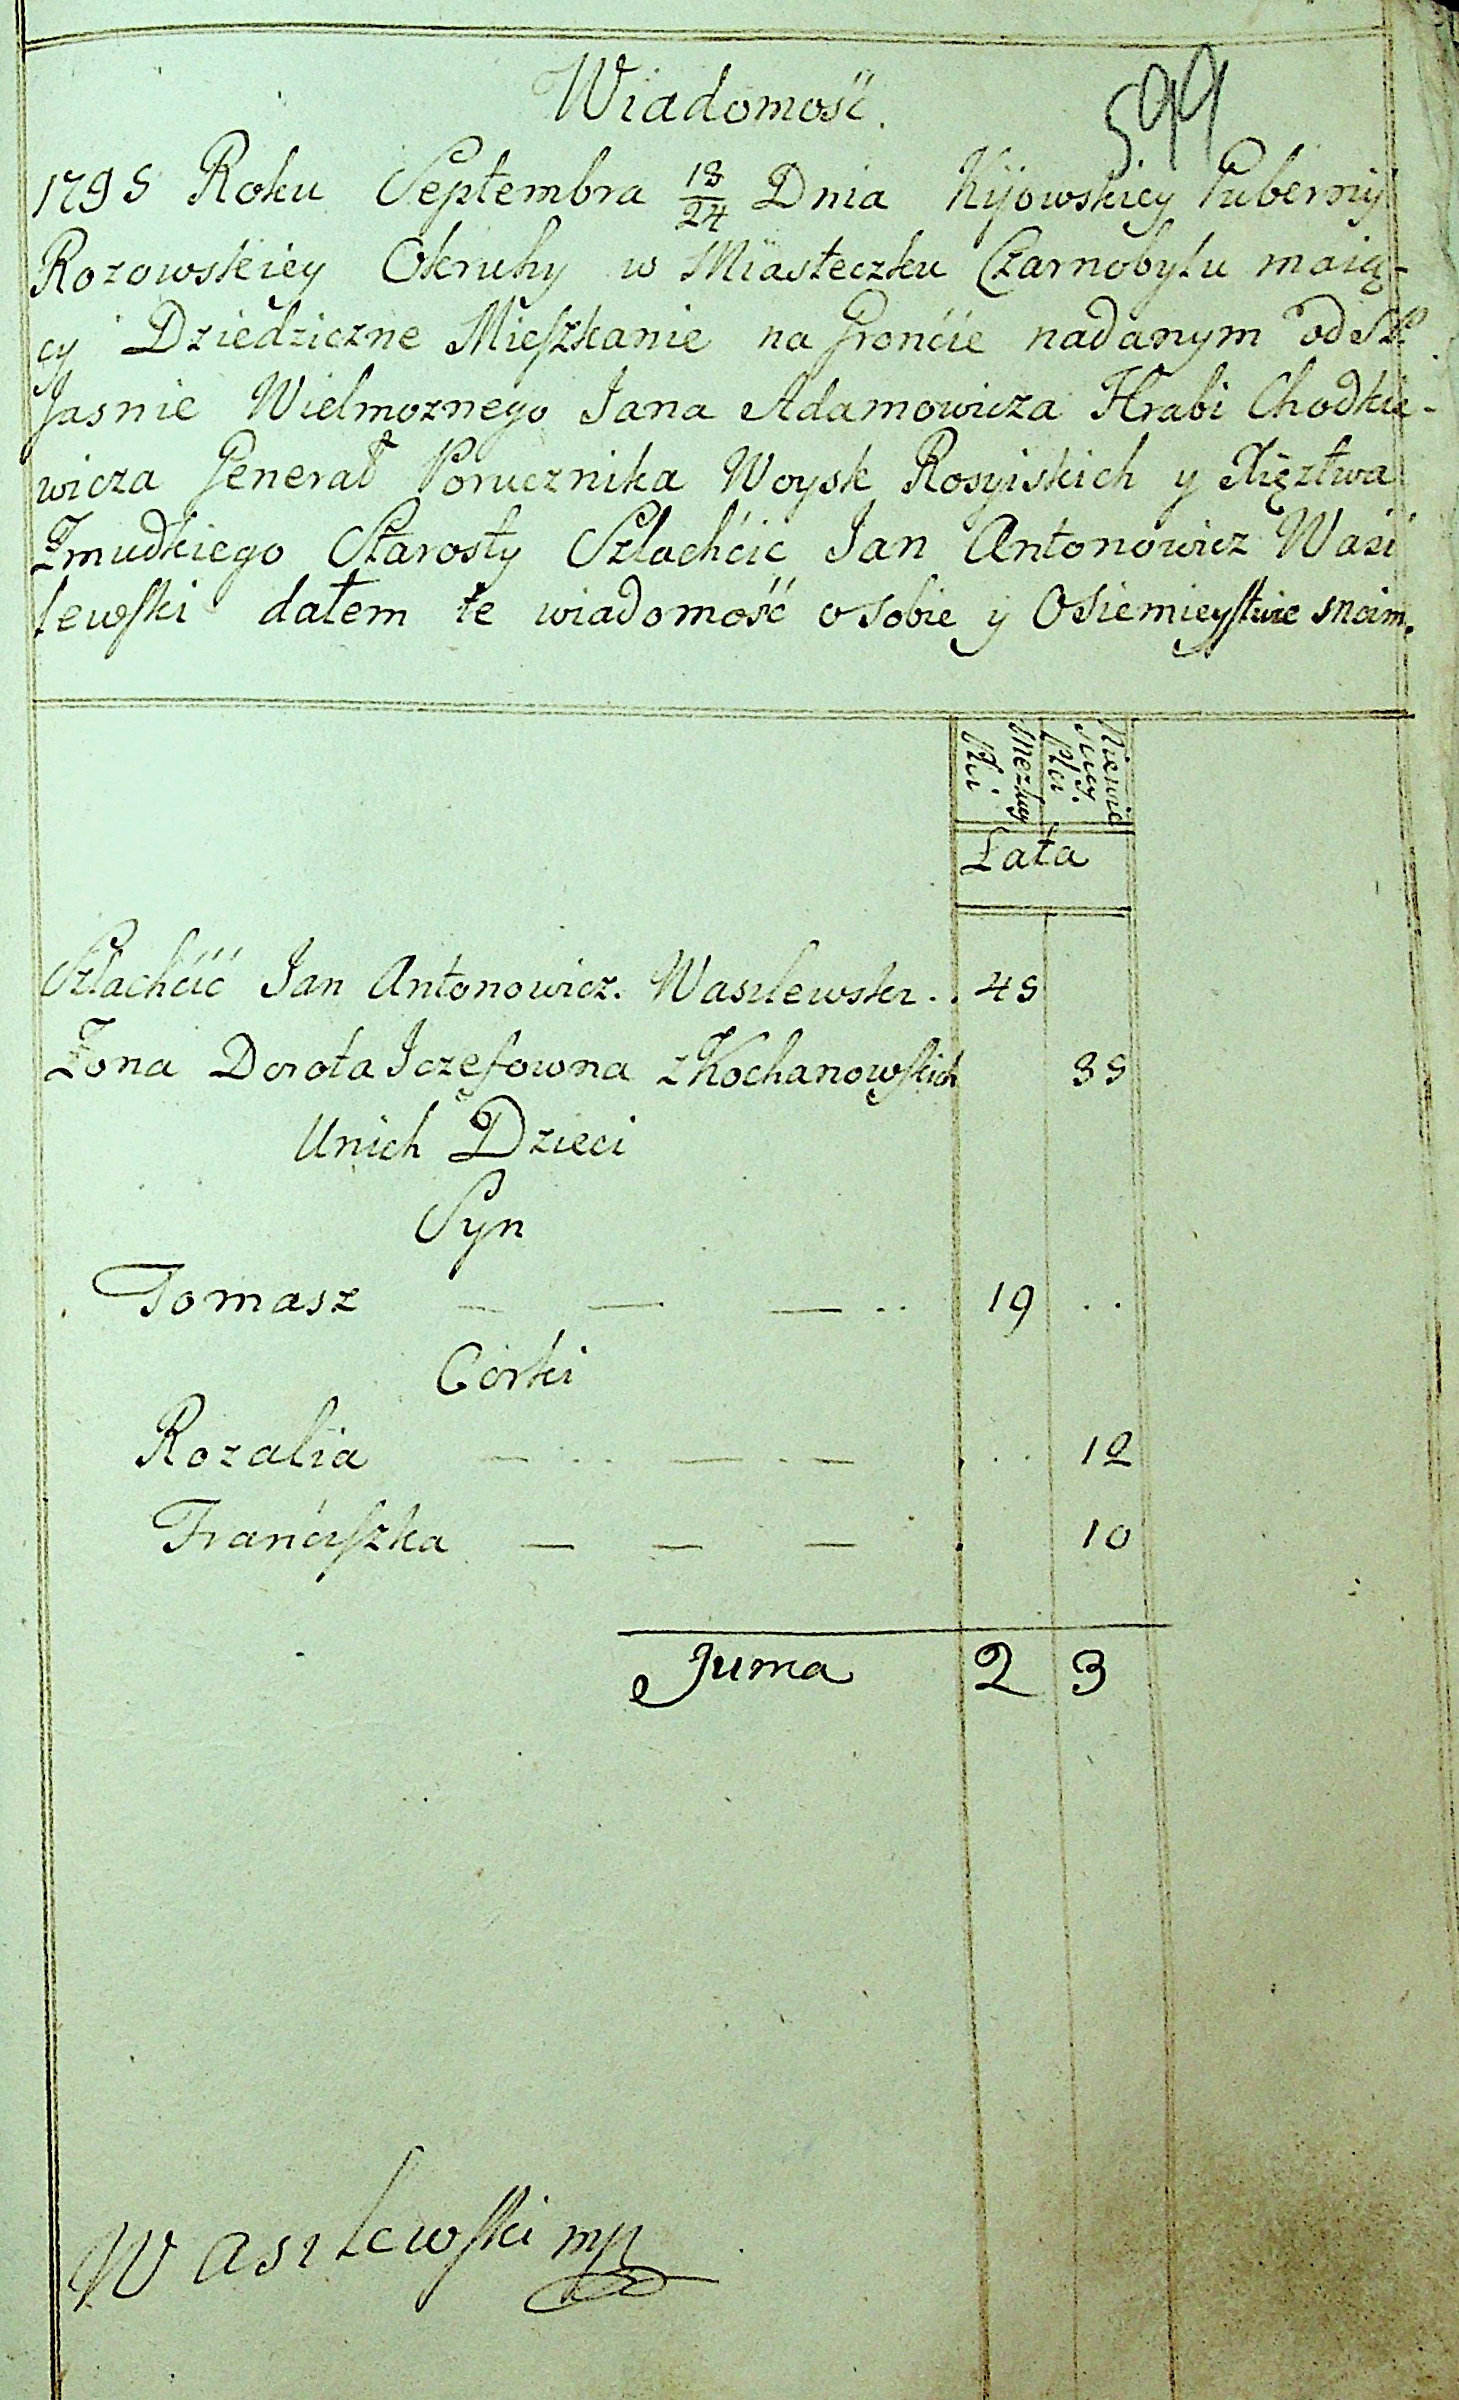 Wiadomość.
599
1795 Roku Septembra 13/24 Dnia Kijowskiey Gubernij
Rozowskiey Okruhy w Miasteczku Czarnobylu maią-
cy Dziedziczne Mieszkanie na Gronćie nadanym od
Jasnie Wielmoznego Jana Adamowicza Hrabi Chodkie-
wicza Generał Porucznika Woysk Rosyiskich y Xięztwa
Zmudkiego Starosty Szlachćic Jan Antonowicz Wasi
lewski dałem te wiadomość o sobie y Osiemieystwie moim.
Mezkiey Płci
Niewieściey Płci
Lata
Szlachćić Jan Antonowicz. Wasilewski .. 45
Zona Dorota Iozefowna z Kochanowskich 35
Unich Dzieci
Syn
Tomasz — — — .. 19 ..
Corki
Rozalia — .. — . — . .. 12
Franćiszka — — — . 10
Suma 2 3
Wasilewski mp